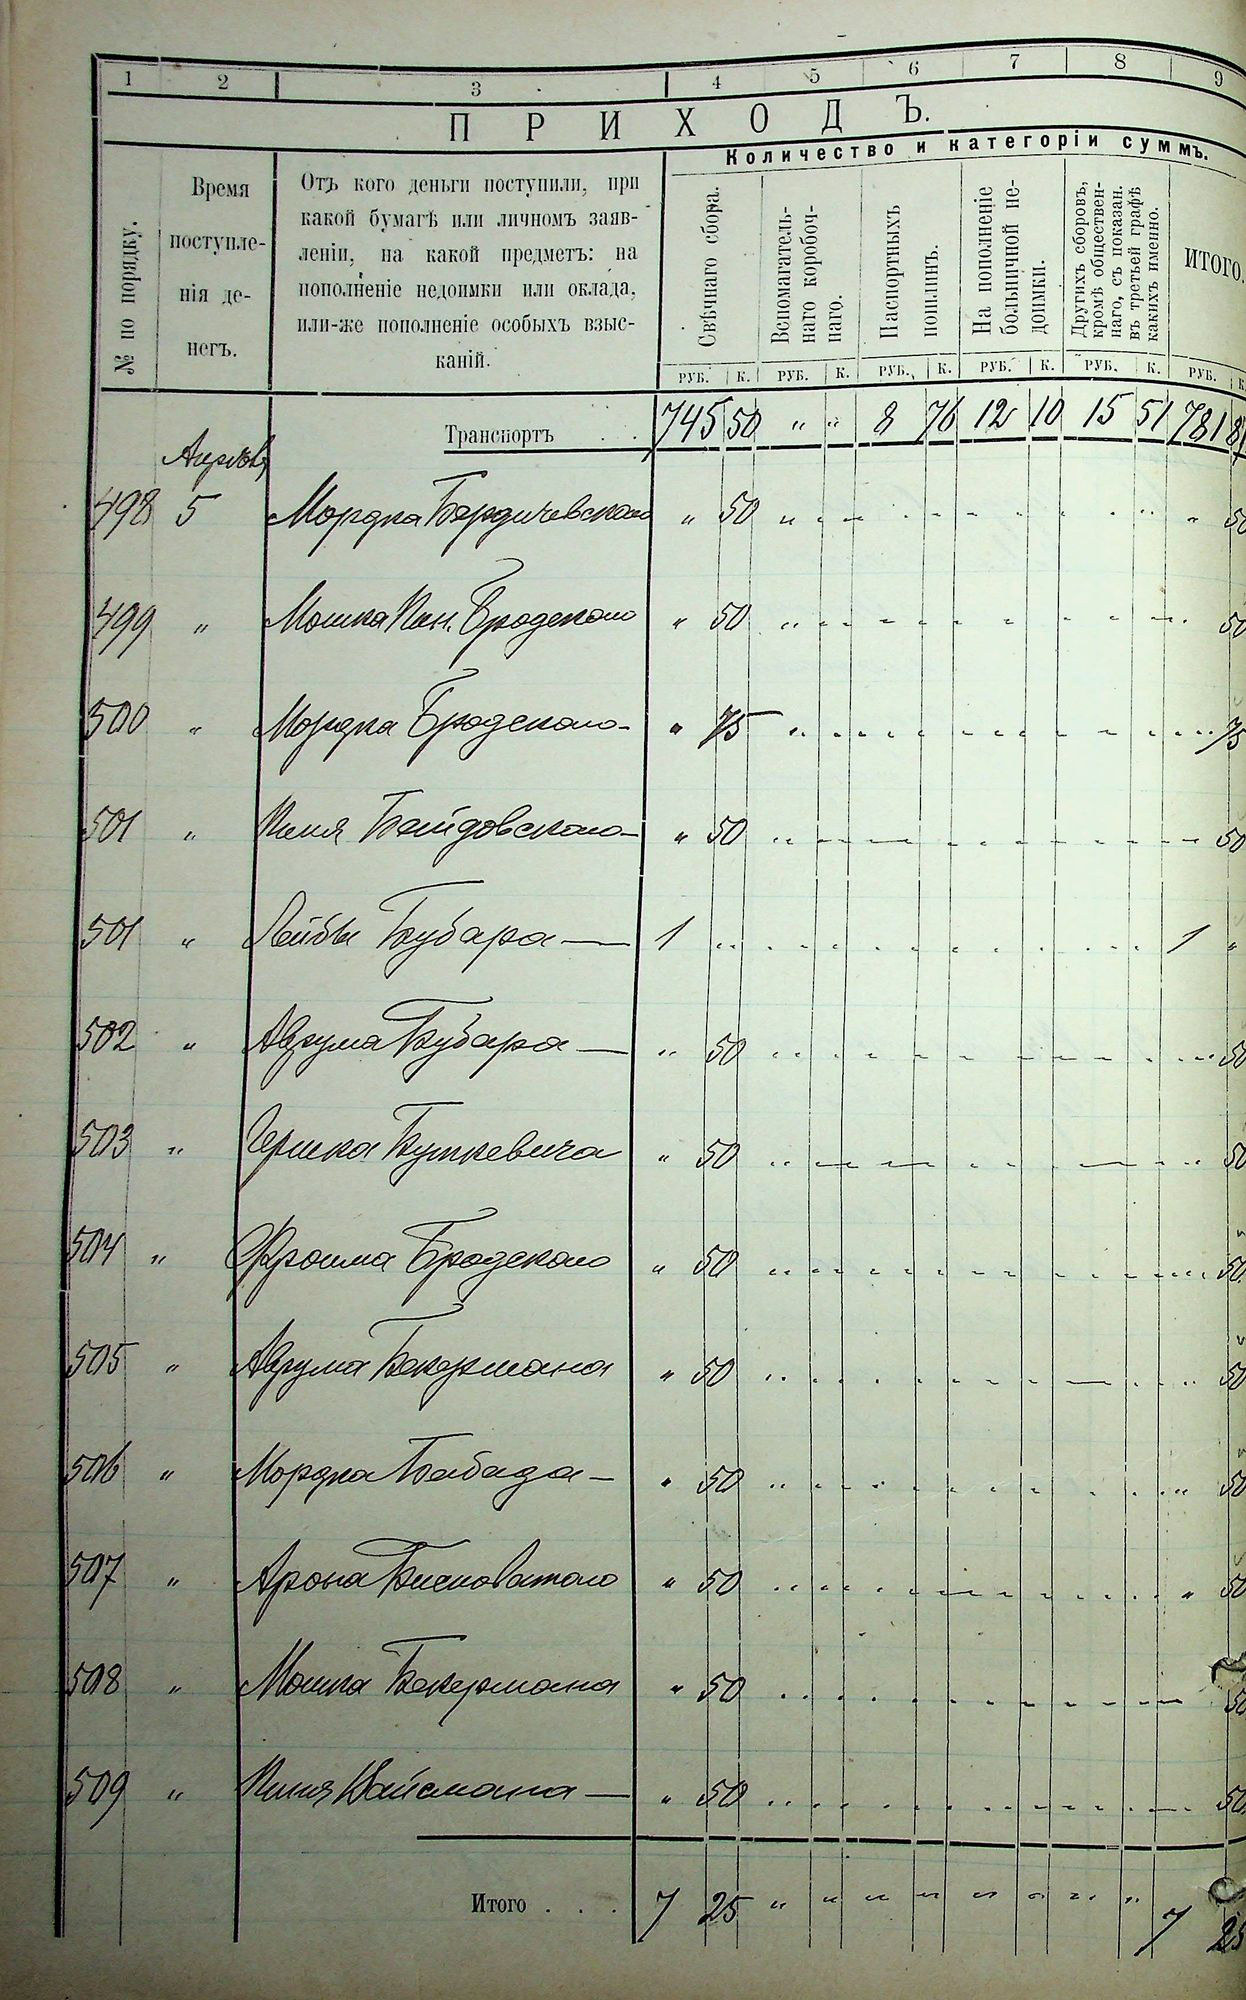 1 2 3 4 5 6 7 8 9
ПРИХОДЪ.
Количество и категоріи суммъ.
№ по порядку.
Время поступле-нія де-негъ.
Отъ кого деньги поступили, при
какой бумагѣ или личномъ заяв-
леніи, на какой предметъ: на
пополненіе недоимки или оклада,
или-же пополненіе особыхъ взыс-
каній.
Свѣчнаго сбора.
Вспомагатель-
наго коробоч-
наго.
Паспортныхъ
пошлинъ.
На пополненіе
больничной не-
доимки.
Другихъ сборовъ,
кромѣ обществен-
наго, съ показан.
въ третьей графѣ
какихъ именно.
ИТОГО.
РУБ. К. РУБ. К. РУБ. К. РУБ. К. РУБ. К. РУБ. К
Транспортъ . . . 745 50 " " 8 76 12 10 15 51 781 87
Апрѣль
498 5 Мордка Бердичевскаго " 50 " 50
499 " Мошка Пин. Бродскаго " 50 " 50
500 " Мордка Бродскаго " 75 " 75
501 " Бейдовскаго " 50 " 50
501 " Лейбы Бубара 1 " 1 "
502 " Аврума Бубара " 50 " 50
503 " Гершка Буткевича " 50 " 50
504 " Фроима Бродскаго " 50 " 50
505 " Аврума Бекермана " 50 " 50
506 " Мордка Бабада " 50 " 50
507 " Арона Бисноватаго " 50 " 50
508 " Мошка Бекермана " 50 " 50
509 " Вайсмана " 50 " 50
Итого . . . 7 25 " " " " " " " " 7 25